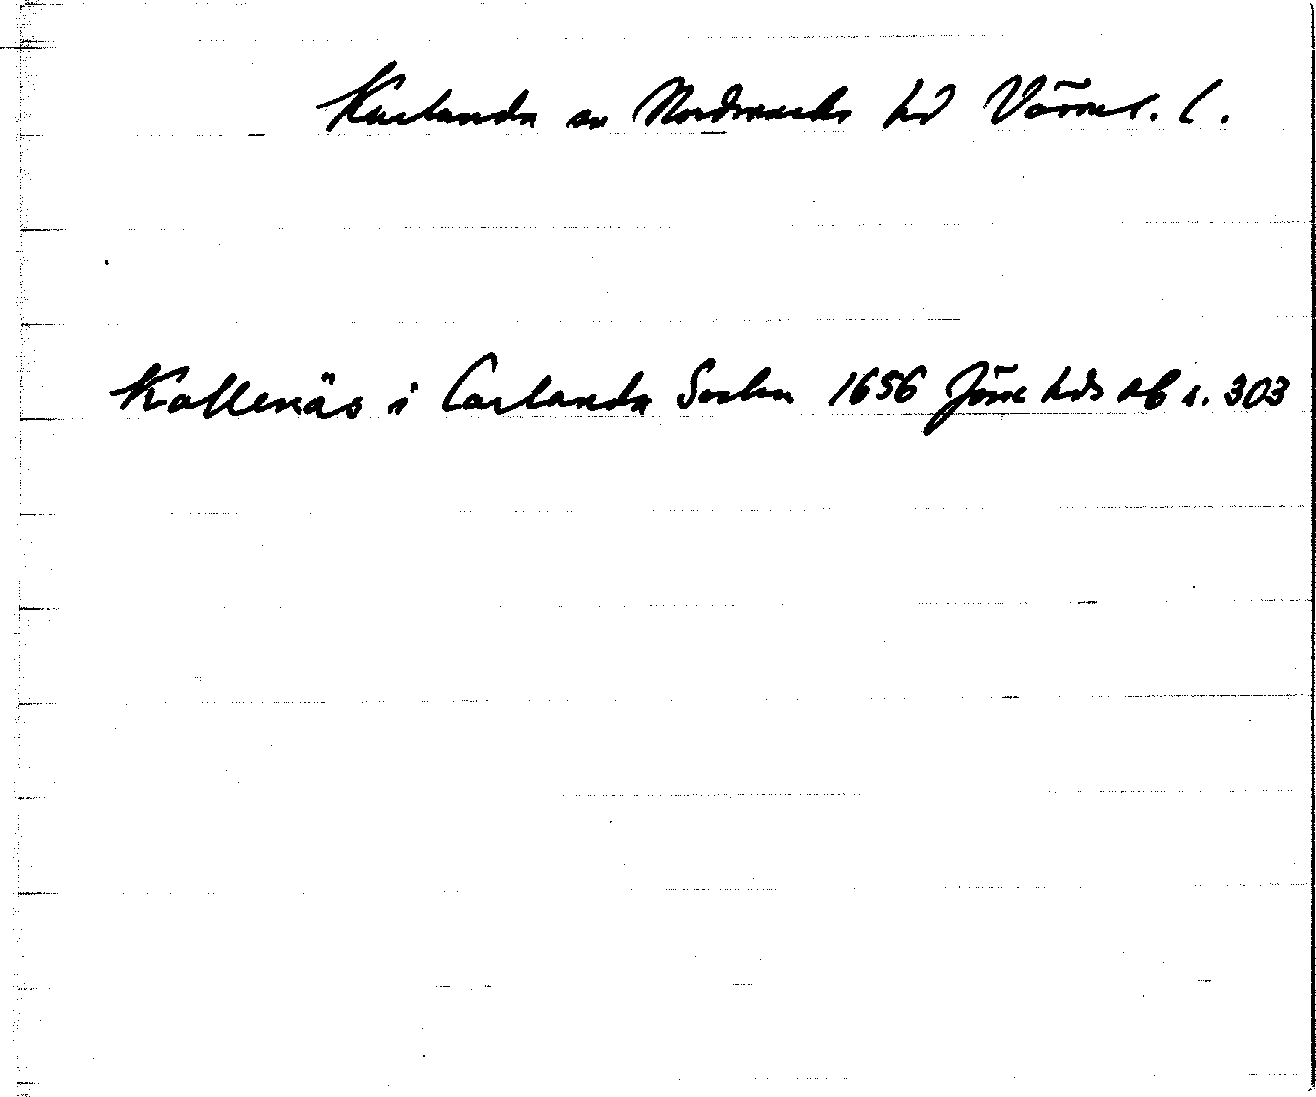 Karlanda sn Nordmarks hd Värml. l.
Kallenäs i Carlanda Sochn 1656 Jösse hds db s. 303